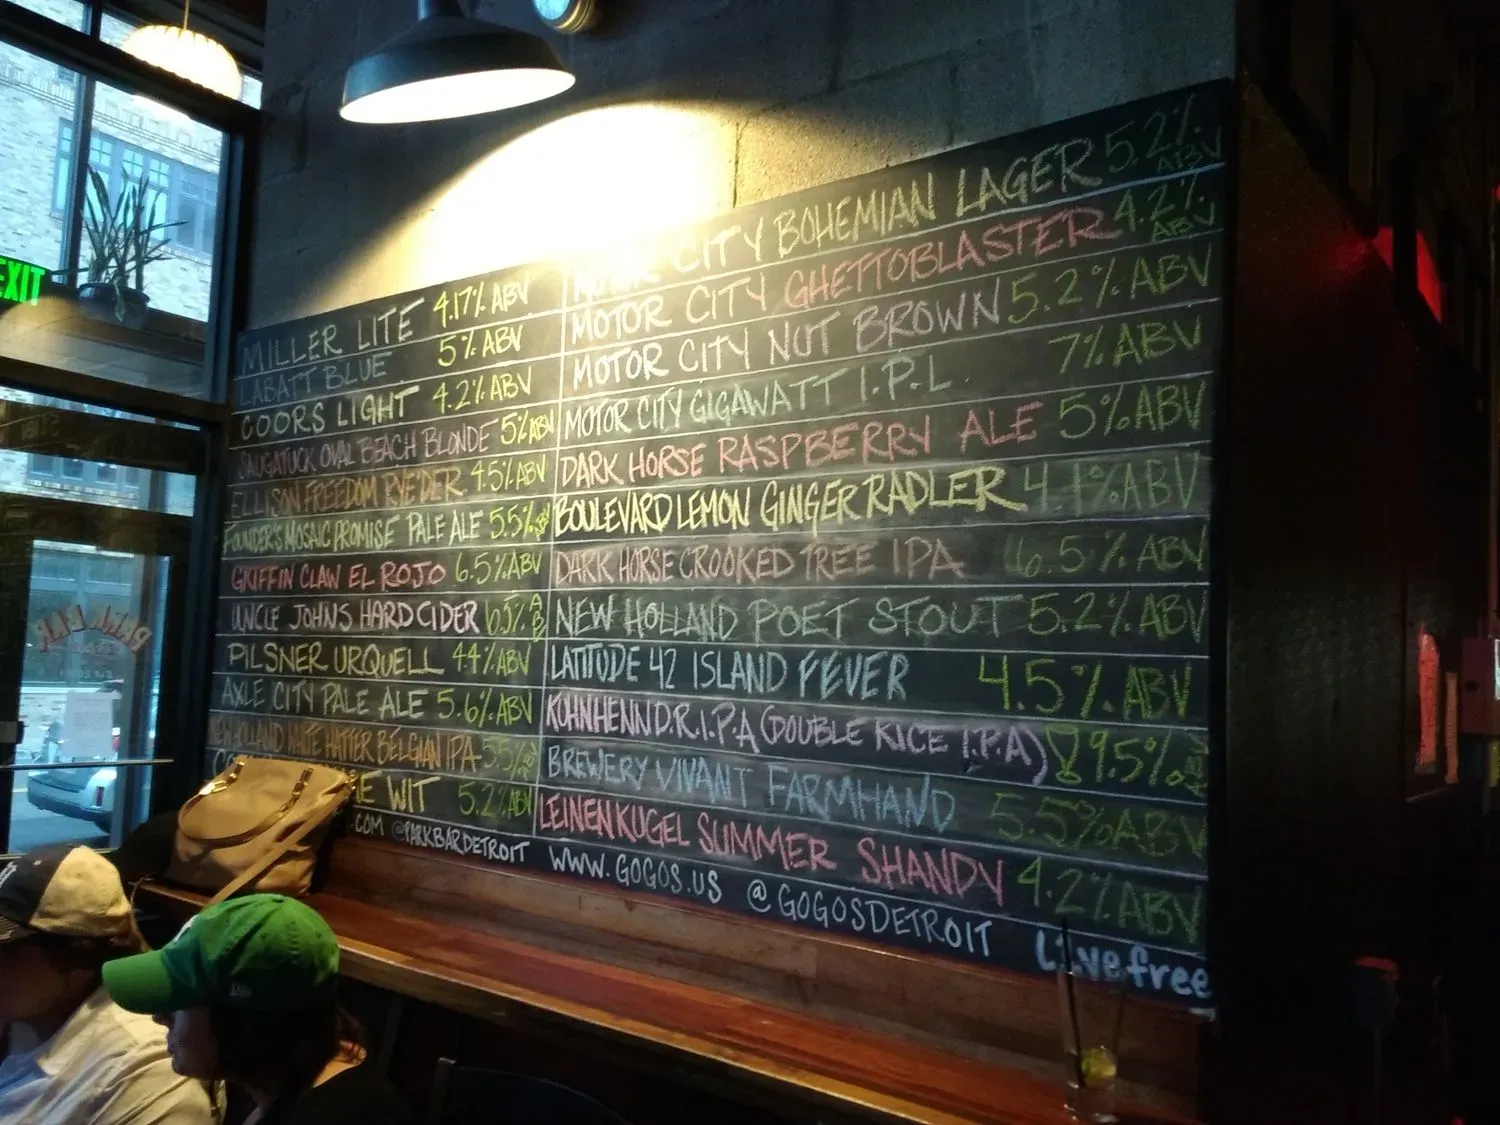 EXIT
MILLER LITE 4.17% ABV
LABATT BLUE 5% ABV
COORS LIGHT 4.2% ABV
SAUGATUCK OVAL BEACH BLONDE 5% ABV
ELLISON FREEDOM RYE'DER 4.5% ABV
FOUNDER'S MOSAIC PROMISE PALE ALE 5.5% ABV
GRIFFIN CLAW EL ROJO 6.5% ABV
UNCLE JOHNS HARD CIDER 6.5% ABV
PILSNER URQUELL 4.4% ABV
AXLE CITY PALE ALE 5.6% ABV
NEW HOLLAND WHITE HATTER BELGIAN IPA 5.5%
WIT 5.2% ABV
.COM @PARKBARDETROIT
MOTOR CITY BOHEMIAN LAGER 5.2% ABV
MOTOR CITY GHETTOBLASTER 4.2% ABV
MOTOR CITY NUT BROWN 5.2% ABV
MOTOR CITY GIGAWATT I.P.L 7% ABV
DARK HORSE RASPBERRY ALE 5% ABV
BOULEVARD LEMON GINGER RADLER 4.1% ABV
DARK HORSE CROOKED TREE IPA 6.5% ABV
NEW HOLLAND POET STOUT 5.2% ABV
LATITUDE 42 ISLAND FEVER 4.5% ABV
KUHNHENN D.R.I.P.A (DOUBLE RICE I.P.A) 9.5%
BREWERY VIVANT FARMHAND 5.5% ABV
LEINENKUGEL SUMMER SHANDY 4.2% ABV
WWW.GOGOS.US @GOGOSDETROIT
Live free